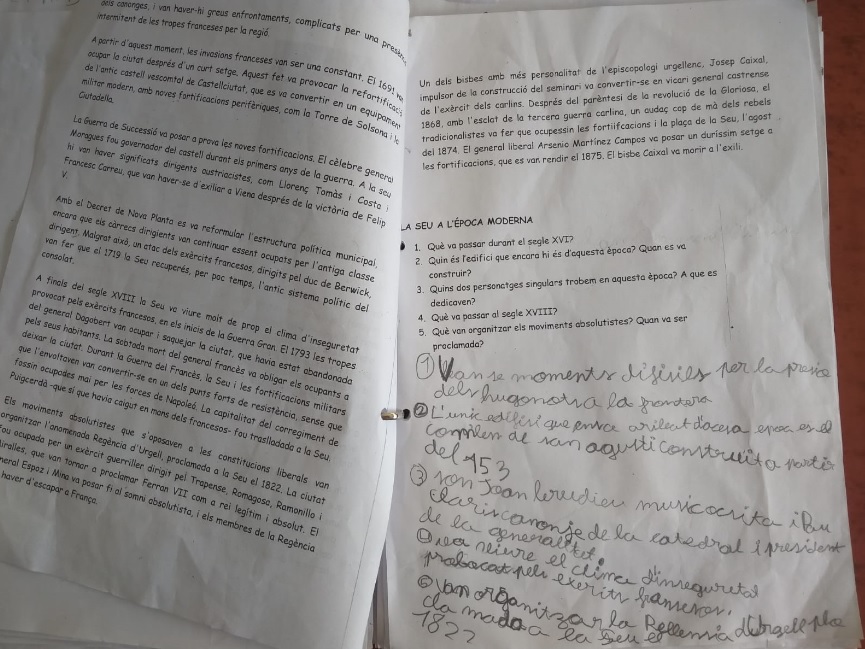 dels canonges, i van haver-hi greus enfrontaments, complicats per una presència
intermitent de les tropes franceses per la regió.
A partir d'aquest moment, les invasions franceses van ser una constant. El 1691 van
ocupar la ciutat després d'un curt setge. Aquest fet va provocar la refortificació
de l'antic castell vescomtal de Castellciutat, que es va convertir en un equipament
militar modern, amb noves fortificacions perifèriques, com la Torre de Solsona i la
Ciutadella.
La Guerra de Successió va posar a prova les noves fortificacions. El cèlebre general
Moragues fou governador del castell durant els primers anys de la guerra. A la seu
hi van haver significats dirigents austriacistes, com Llorenç Tomàs i Costa i
Francesc Correu, que van haver-se d'exiliar a Viena després de la victòria de Felip
V.
Amb el Decret de Nova Planta es va reformular l'estructura política municipal,
encara que els càrrecs dirigents van continuar essent ocupats per l'antiga classe
dirigent. Malgrat això, un atac dels exèrcits francesos, dirigits pel duc de Berwick,
van fer que el 1719 la Seu recuperés, per poc temps, l'antic sistema polític del
consolat.
A finals del segle XVIII la Seu va viure molt de prop el clima d'inseguretat
provocat pels exèrcits francesos, en els inicis de la Guerra Gran. El 1793 les tropes
del general Dagobert van ocupar i saquejar la ciutat, que havia estat abandonada
pels seus habitants. La sobtada mort del general francès va obligar els ocupants a
deixar la ciutat. Durant la Guerra del Francès, la Seu i les fortificacions militars
que l'envoltaven van convertir-se en un dels punts forts de resistència, sense que
fossin ocupades mai per les forces de Napoleó. La capitalitat del corregiment de
Puigcerdà -que sí que havia caigut en mans dels francesos- fou traslladada a la Seu.
Els moviments absolutistes que s'oposaven a les constitucions liberals van
organitzar l'anomenada Regència d'Urgell, proclamada a la Seu el 1822. La ciutat
fou ocupada per un exèrcit guerriller dirigit pel Trapense, Romagosa, Romanillo i
Miralles, que van tornar a proclamar Ferran VII com a rei legítim i absolut. El
general Espoz i Mina va posar fi al somni absolutista, i els membres de la Regència
haver d'escapar a França.
Un dels bisbes amb més personalitat de l'episcopologi urgellenc, Josep Caixal,
impulsor de la construcció del seminari va convertir-se en vicari general castrense
de l'exèrcit dels carlins. Després del parèntesi de la revolució de la Gloriosa, el
1868, amb l'esclat de la tercera guerra carlina, un audaç cop de mà dels rebels
tradicionalistes va fer que ocupessin les fortiifcacions i la plaça de la Seu, l'agost
del 1874. El general liberal Arsenio Martínez Campos va posar un duríssim setge a
les fortificacions, que es van rendir el 1875. El bisbe Caixal va morir a l'exili.
LA SEU A L'ÈPOCA MODERNA
1. Què va passar durant el segle XVI?
2. Quin és l'edifici que encara hi és d'aquesta època? Quan es va
construir?
3. Quins dos personatges singulars trobem en aquesta època? A que es
dedicaven?
4. Què va passar al segle XVIII?
5. Què van organitzar els moviments absolutistes? Quan va ser
proclamada?
① Van se moments difisils per la presia
dels hugonots a la frontera
② L'unic edifisi que enca es el
de san agusti construit a partir
del 153
③ son Joan brudieu music i Pau
claris canonje de la catedral i president
de la generalitat.
va viure el clima d'inseguretat
probocat pels exerits fransesos.
⑤ Van organitzar la d'Urgell plo
clamada a la Seu el
1822